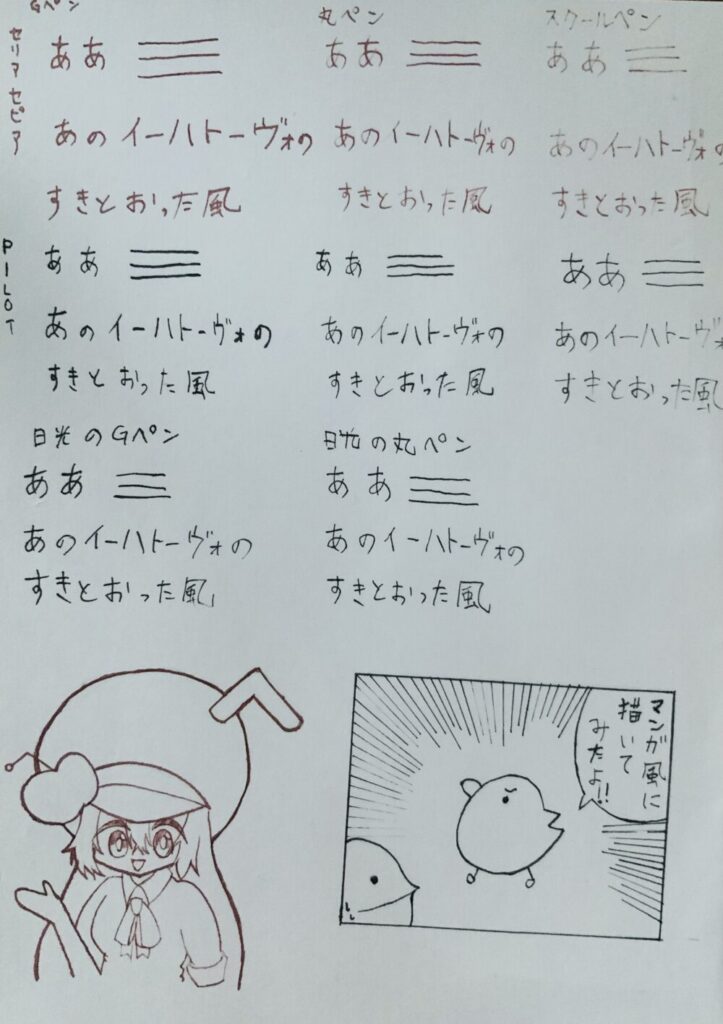 Gペン
丸ペン
スクールペン
セリア セピア
ああ
ああ
ああ
あのイーハトーヴォの
あのイーハトーヴォの
あのイーハトーヴォの
すきとおった風
すきとおった風
すきとおった風
PILOT
ああ
ああ
ああ
あのイーハトーヴォの
あのイーハトーヴォの
あのイーハトーヴォ
すきとおった風
すきとおった風
すきとおった風
日光のGペン
日光の丸ペン
ああ
ああ
あのイーハトーヴォの
あのイーハトーヴォの
すきとおった風
すきとおった風
マンガ風に
描いて
みたよ!!